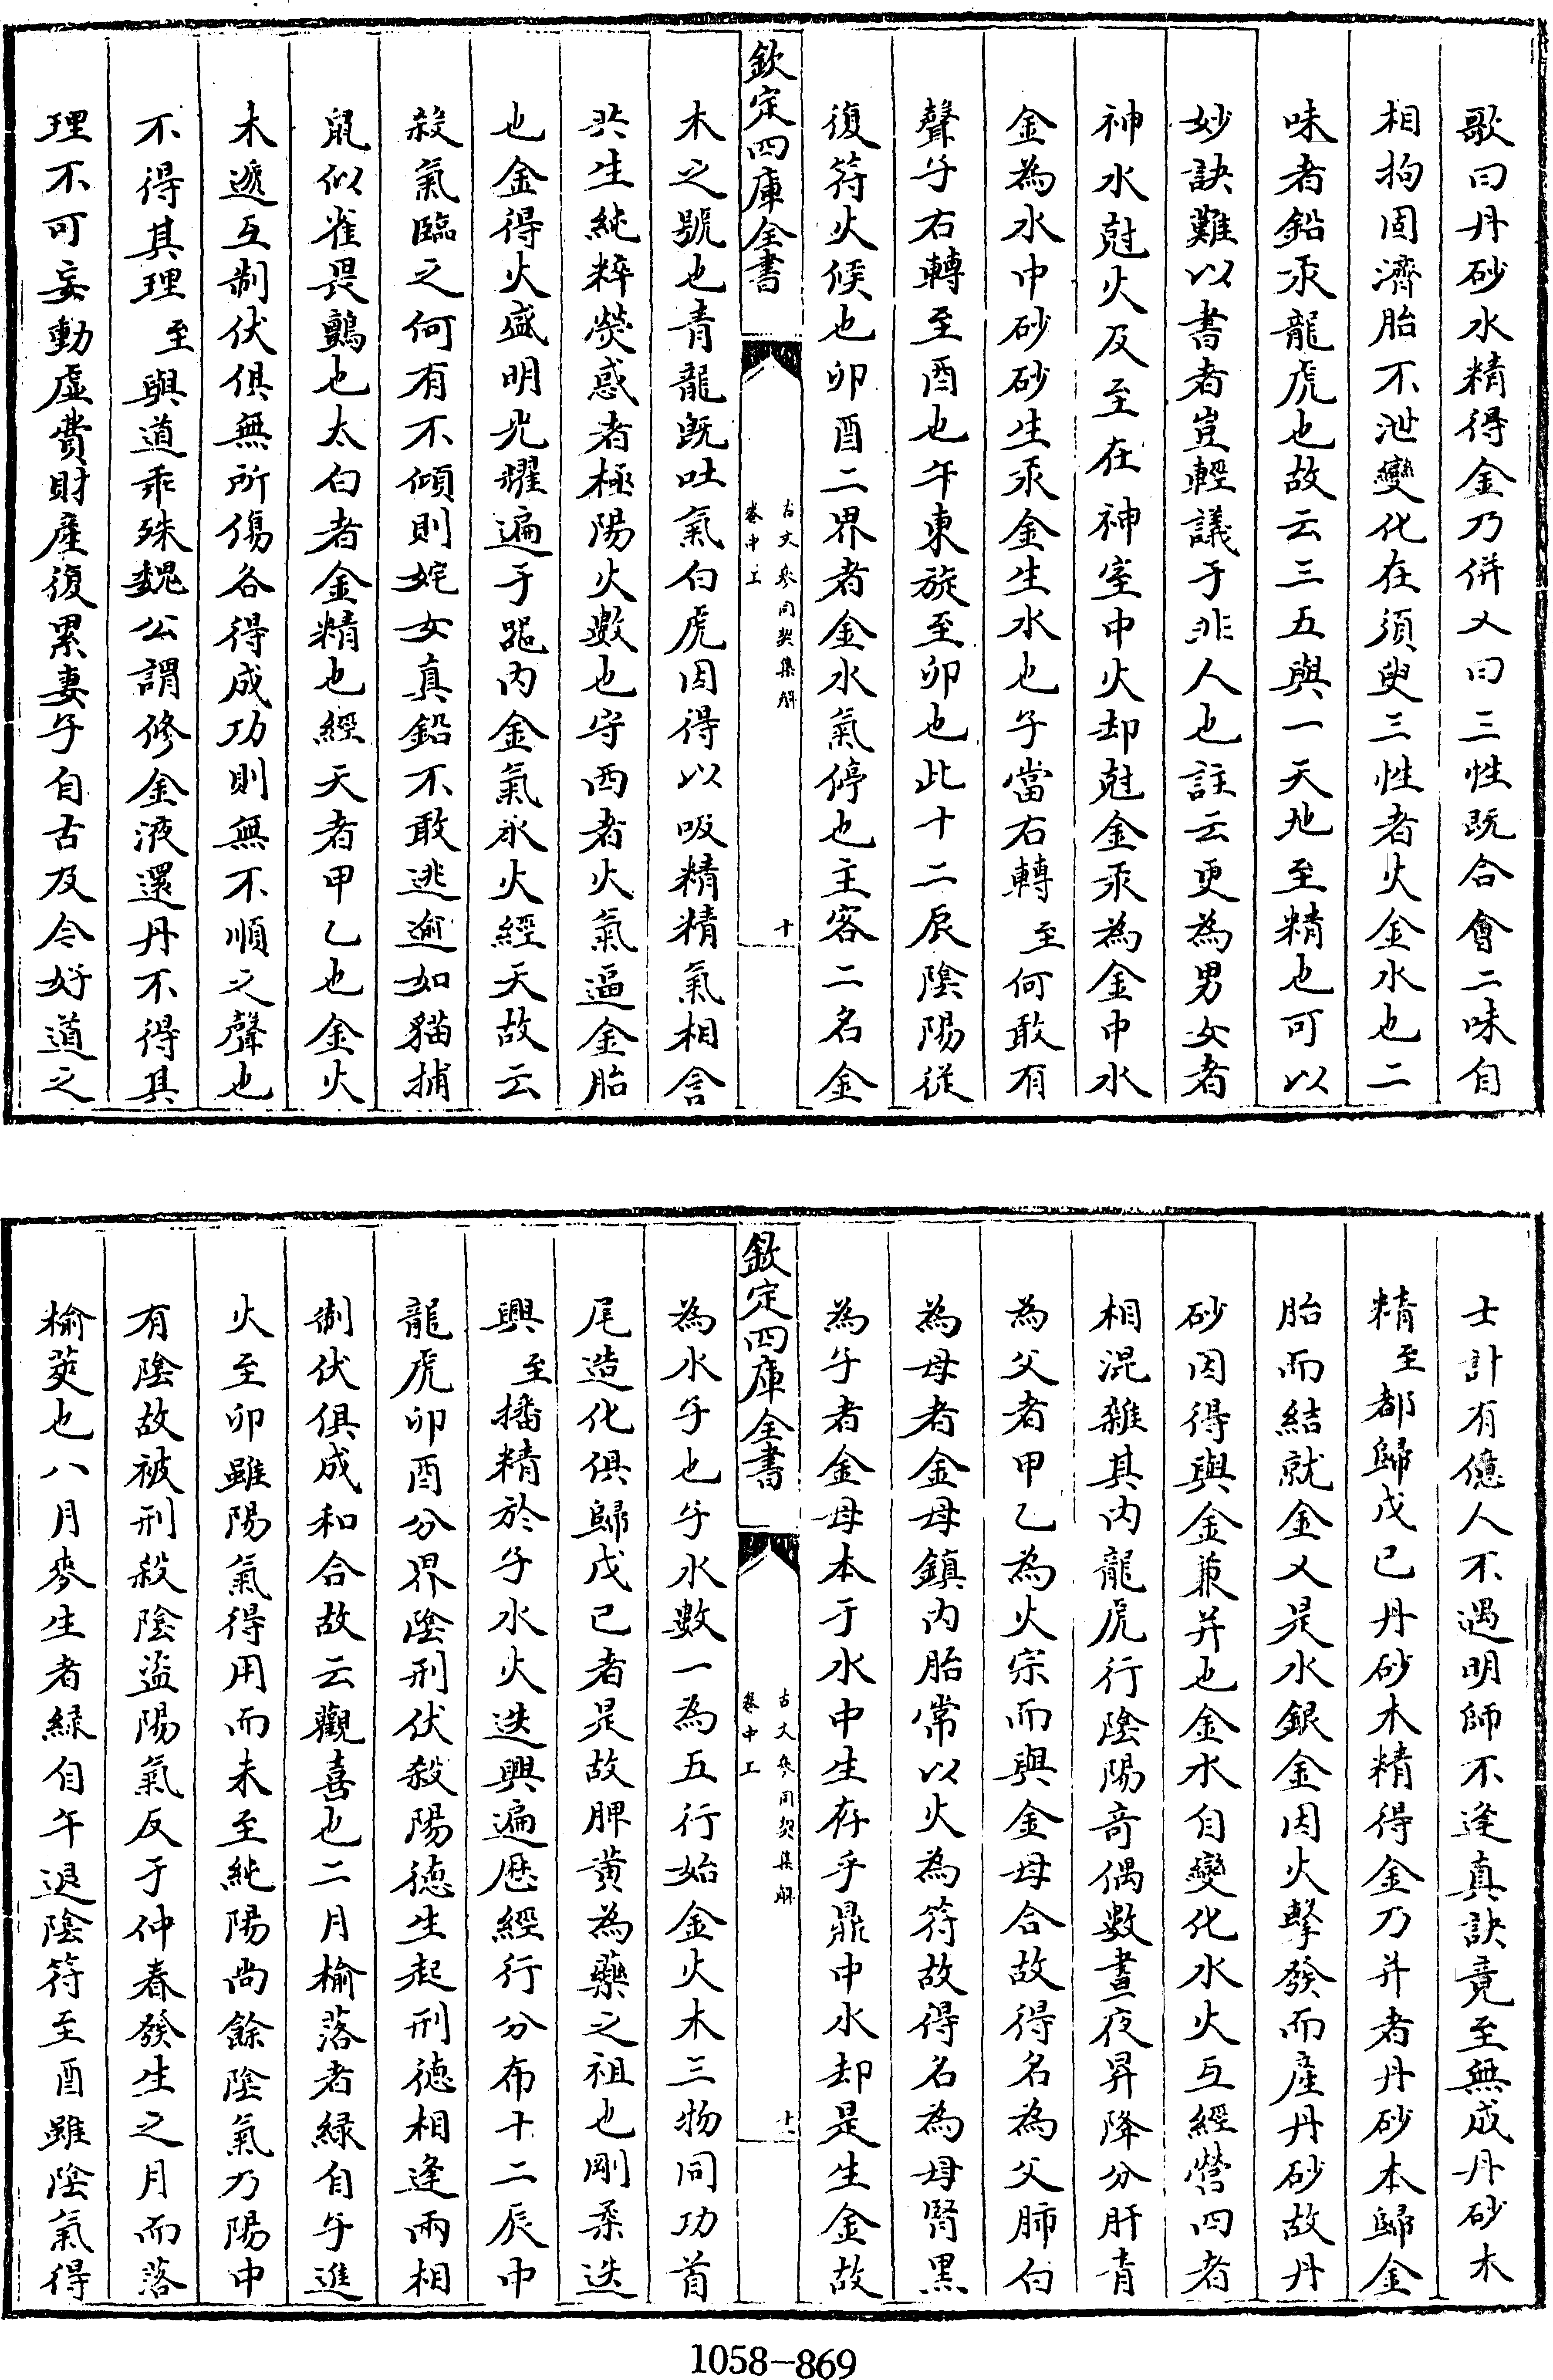 歌曰丹砂水精得金乃併又曰三性既合會二味自
相拘固濟胎不泄變化在須臾三性者火金水也二
味者鉛汞龍虎也故云三五與一天地至精也可以
妙訣難以書者豈輕議于非人也註云更為男女者
神水尅火及至在神室中火却尅金汞為金中水
金為水中砂砂生汞金生水也子當右轉至何敢有
聲子右轉至酉也午東旋至卯也此十二辰陰陽從
復符火候也卯酉二界者金水氣停也主客二名金
欽定四庫全書
古文參同契集解
卷中上
十
木之號也青龍既吐氣白虎因得以吸精精氣相含
共生純粹熒惑者極陽火數也守西者火氣逼金胎
也金得火盛明光耀遍于器内金氣承火經天故云
殺氣臨之何有不傾則姹女真鉛不敢逃逾如貓捕
鼠似雀畏鸇也太白者金精也經天者甲乙也金火
未遞互制伏俱無所傷各得成功則無不順之聲也
不得其理至與道乖殊魏公謂修金液還丹不得其
理不可妄動虛費財産復累妻子自古及今好道之
士計有億人不遇明師不逢真訣竟至無成丹砂木
精至都歸戊己丹砂木精得金乃并者丹砂本歸金
胎而結就金又是水銀金因火擊發而産丹砂故丹
砂因得與金兼并也金水自變化水火互經營四者
相混雜其内龍虎行陰陽奇偶數晝夜昇降分肝青
為父者甲乙為火宗而與金母合故得名為父肺白
為母者金母鎮内胎常以火為符故得名為母腎黑
為子者金母本于水中生存乎鼎中水却是生金故
欽定四庫全書
古文參同契集解
卷中上
十一
為水子也子水數一為五行始金火木三物同功首
尾造化俱歸戊己者是故脾黄為藥之祖也剛柔迭
興至播精於子水火迭興遍歴經行分布十二辰中
龍虎卯酉分界陰刑伏殺陽德生起刑德相逢兩相
制伏俱成和合故云觀喜也二月榆落者緑自子進
火至卯雖陽氣得用而未至純陽尚餘陰氣乃陽中
有陰故被刑殺陰盜陽氣反于仲春發生之月而落
榆莢也八月麥生者緑自午退陰符至酉雖陰氣得
1058-869